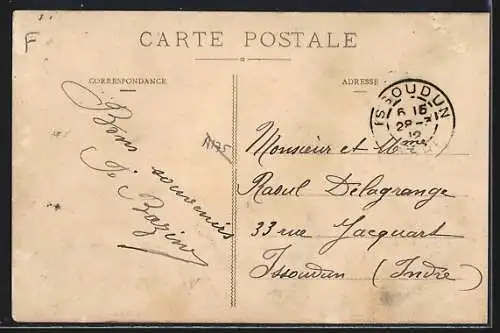 F
CARTE POSTALE
CORRESPONDANCE
ADRESSE
Bons souvenirs
ISSOUDUN
6 15
29-3
12
Monsieur et Mme
Raoul Delagrange
33 rue Jacquart
Issoudun (Indre)